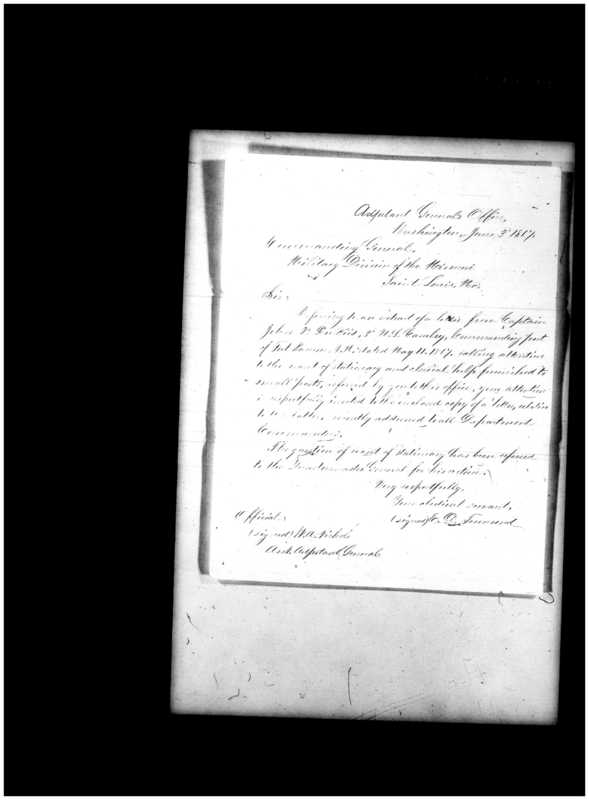 Adjutant General's Office,
Washington, June 3d 1867.
Commanding General,
Military Division of the Missouri
Saint Louis, Mo.
Sir:
Referring to an extract of a letter from Captain
John 3d U.S. Cavalry, Commanding post
of Fort N.M. dated May 11. 1867. calling attention
to the want of stationery and clerical help furnished to
small posts, referred by you to this office, your attention
is respectfully invited to the inclosed copy of a letter, relative
to the latter, recently addressed to all Department
Commanders.
The question of want of stationery has been referred
to the Quartermaster General for his action.
Very respectfully,
Your obedient servant,
(signed) E. D. Townsend
Official:
(signed) W. A. Nichols
Asst. Adjutant General